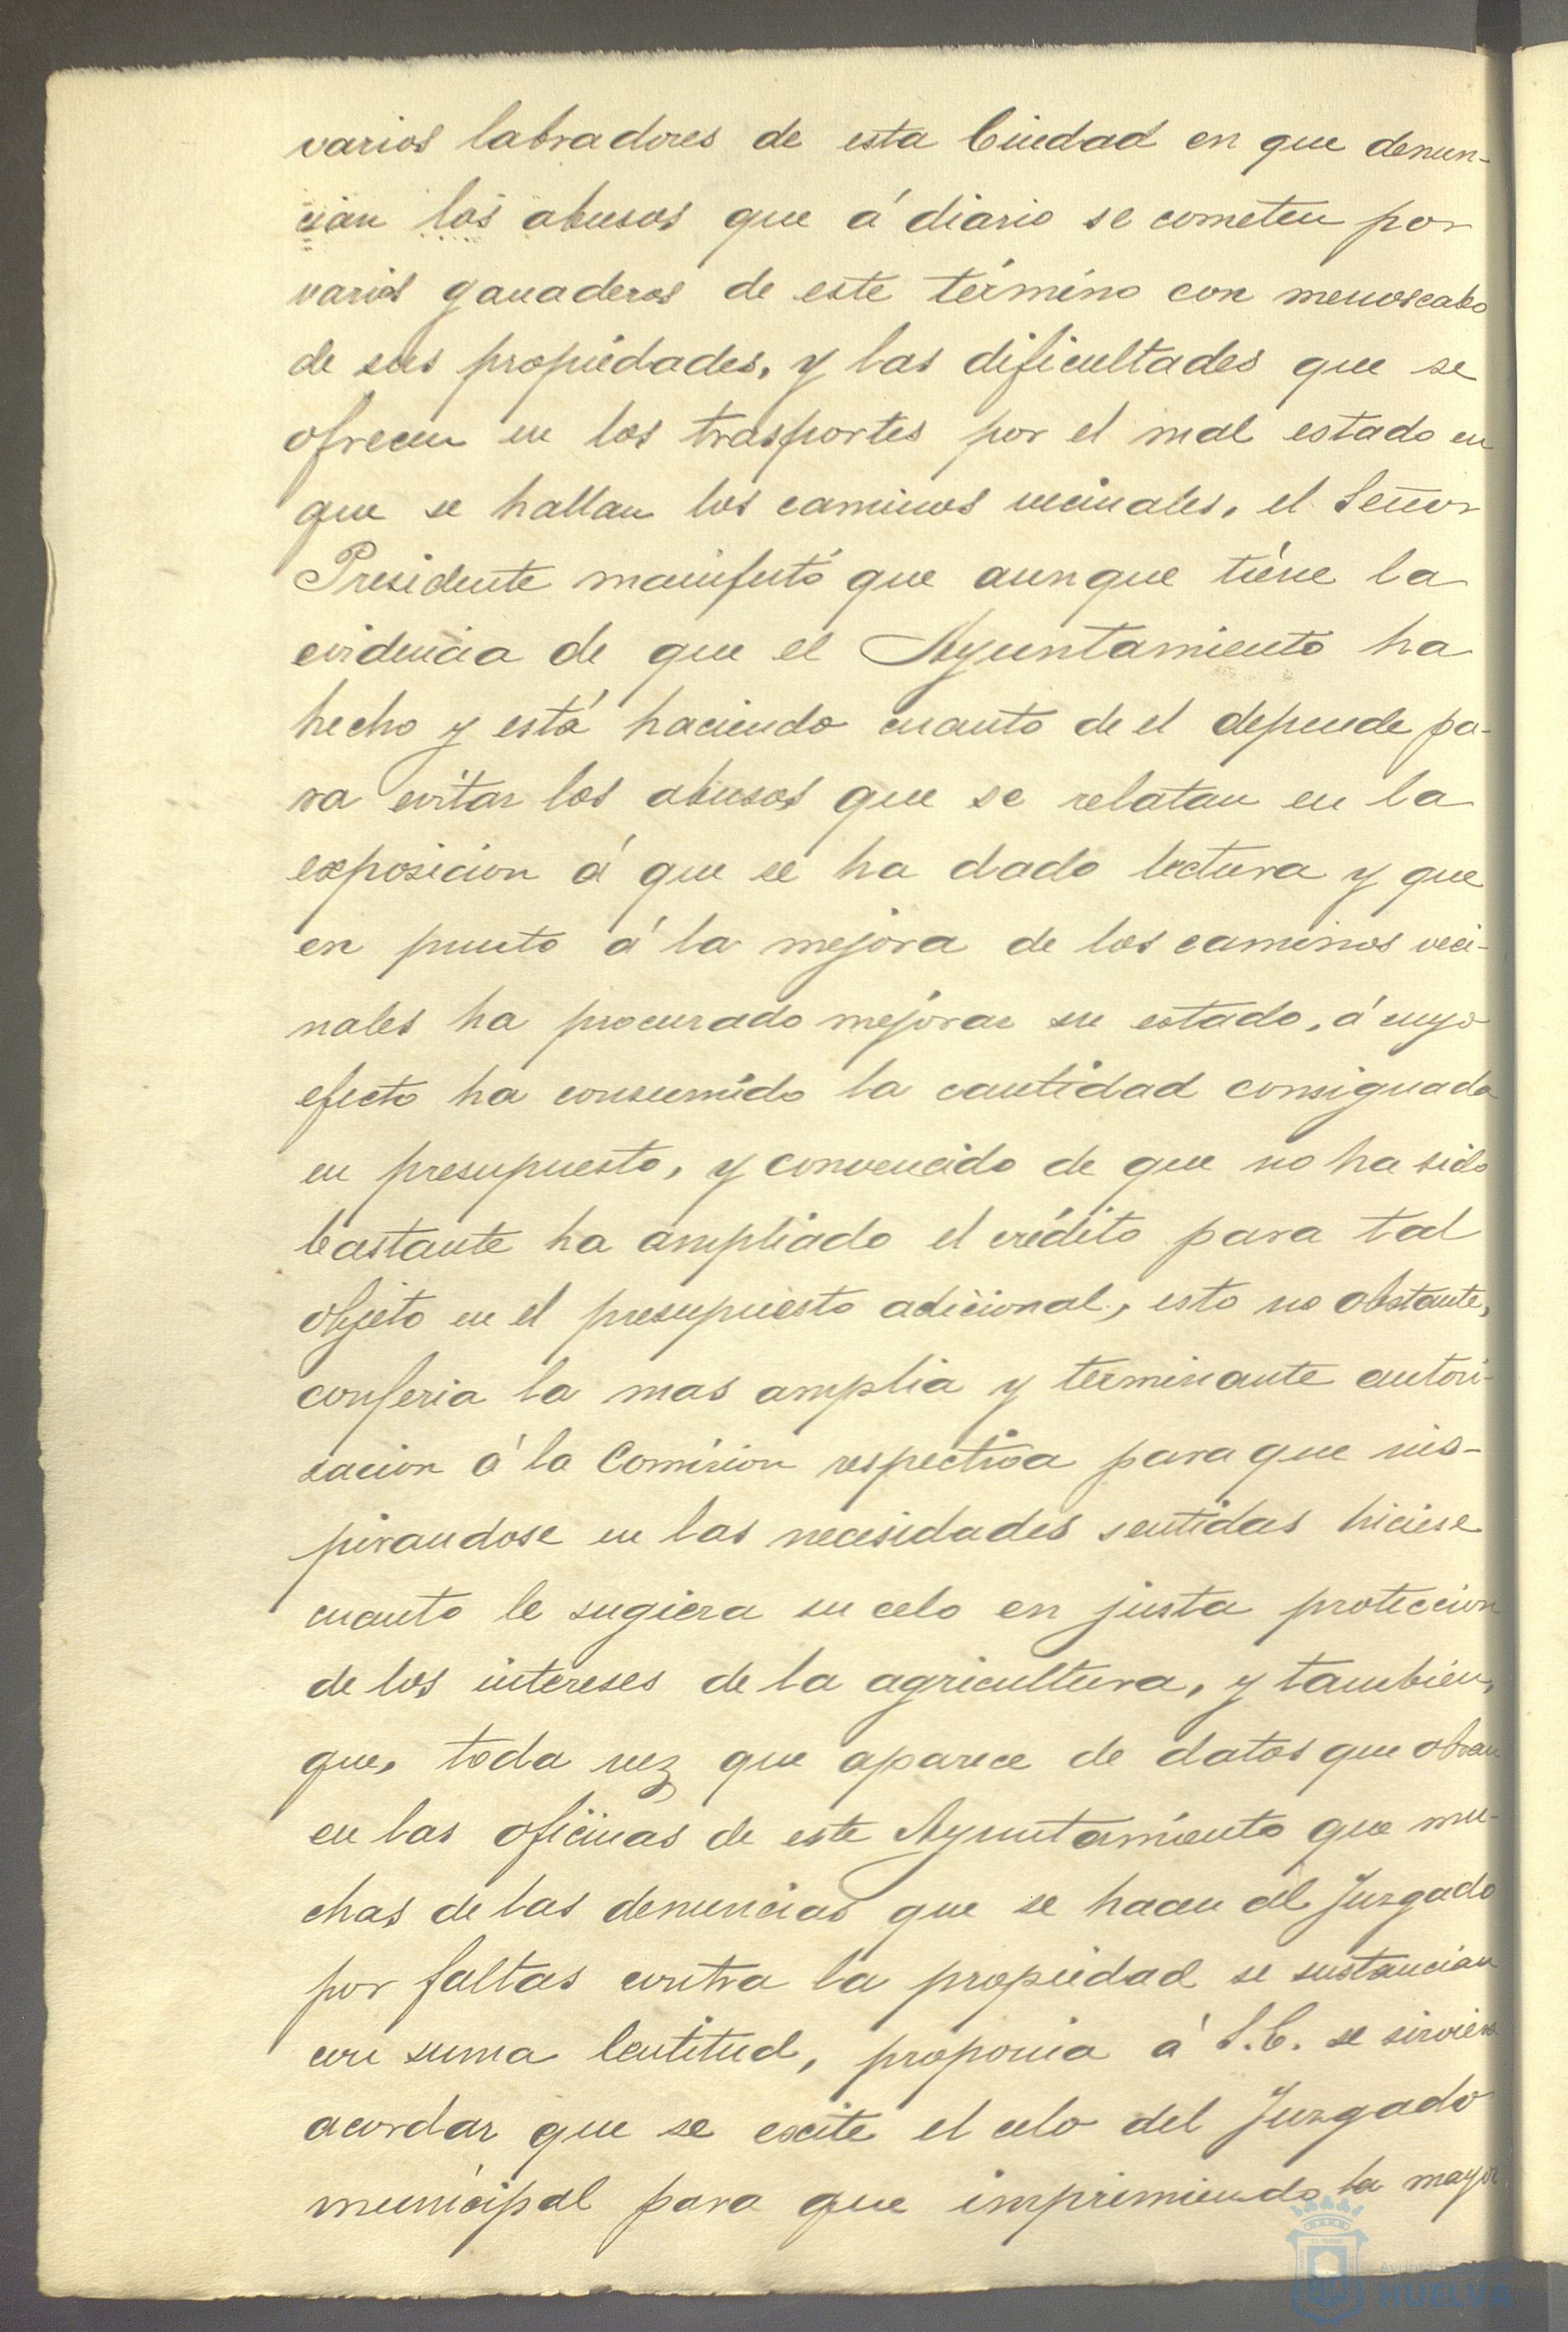 varios labradores de esta Ciudad en que denun-
cian los abusos que á diario se cometen por
varios ganaderos de este término con menoscabo
de sus propiedades, y las dificultades que se
ofrecen en los trasportes por el mal estado en
que se hallan los caminos vecinales, el Señor
Presidente manifestó que aunque tiene la
evidencia de que el Ayuntamiento ha
hecho y está haciendo cuanto de el depende pa-
ra evitar los abusos que se relatan en la
exposicion á que se ha dado lectura y que
en punto á la mejora de los caminos veci-
nales ha procurado mejorar su estado, á cuyo
efecto ha consumido la cantidad consignada
en presupuesto, y convencido de que no ha sido
bastante ha ampliado el crédito para tal
objeto en el presupuesto adicional, esto no obstante,
conferia la mas amplia y terminante autori-
zacion á la Comision respectiva para que ins-
pirandose en las necesidades sentidas hiciese
cuanto le sugiera su celo en justa proteccion
de los intereses de la agricultura, y tambien,
que, toda vez que aparece de datos que obran
en las oficinas de este Ayuntamiento que mu-
chas de las denuncias que se hacen al Juzgado
por faltas contra la propiedad se sustancian
con suma lentitud, proponia á S.E. se sirviera
acordar que se excite el celo del Juzgado
municipal para que imprimiendo la mayor
HUELVA